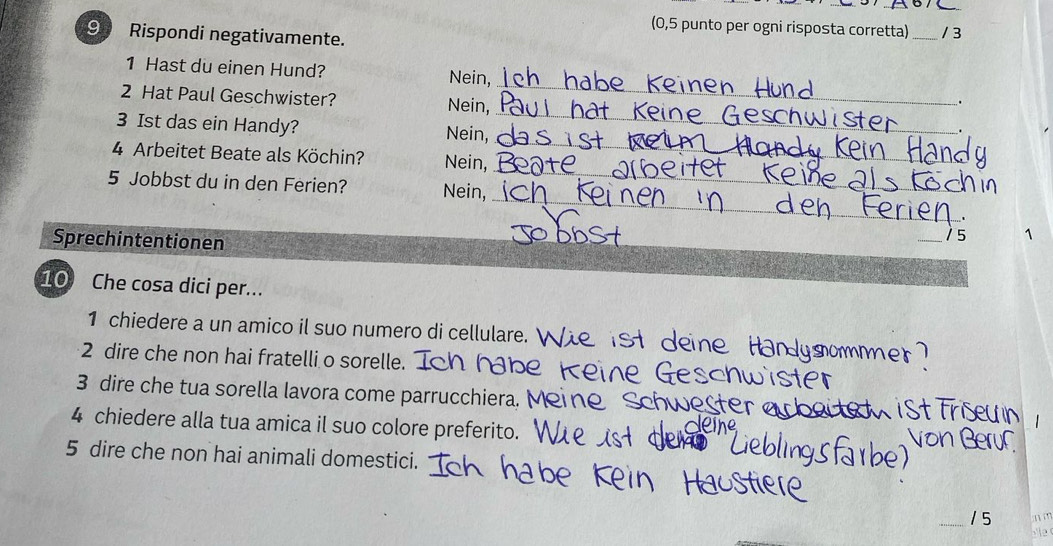 (0,5 punto per ogni risposta corretta) ____ / 3
9 Rispondi negativamente.
1 Hast du einen Hund? Nein, ich habe keinen Hund.
2 Hat Paul Geschwister? Nein, Paul hat keine Geschwister.
3 Ist das ein Handy? Nein, das ist kein Handy
4 Arbeitet Beate als Köchin? Nein, Beate arbeitet keine als Köchin
5 Jobbst du in den Ferien? Nein, ich keinen in den Ferien.
Jobbst
____ / 5 1
Sprechintentionen
10 Che cosa dici per...
1 chiedere a un amico il suo numero di cellulare. Wie ist deine Handynommer?
2 dire che non hai fratelli o sorelle. Ich habe keine Geschwister
3 dire che tua sorella lavora come parrucchiera. Meine Schwester ist Friseurin
von Beruf.
4 chiedere alla tua amica il suo colore preferito. Wie ist deine Lieblingsfarbe?
5 dire che non hai animali domestici. Ich habe kein Haustiere
____ / 5